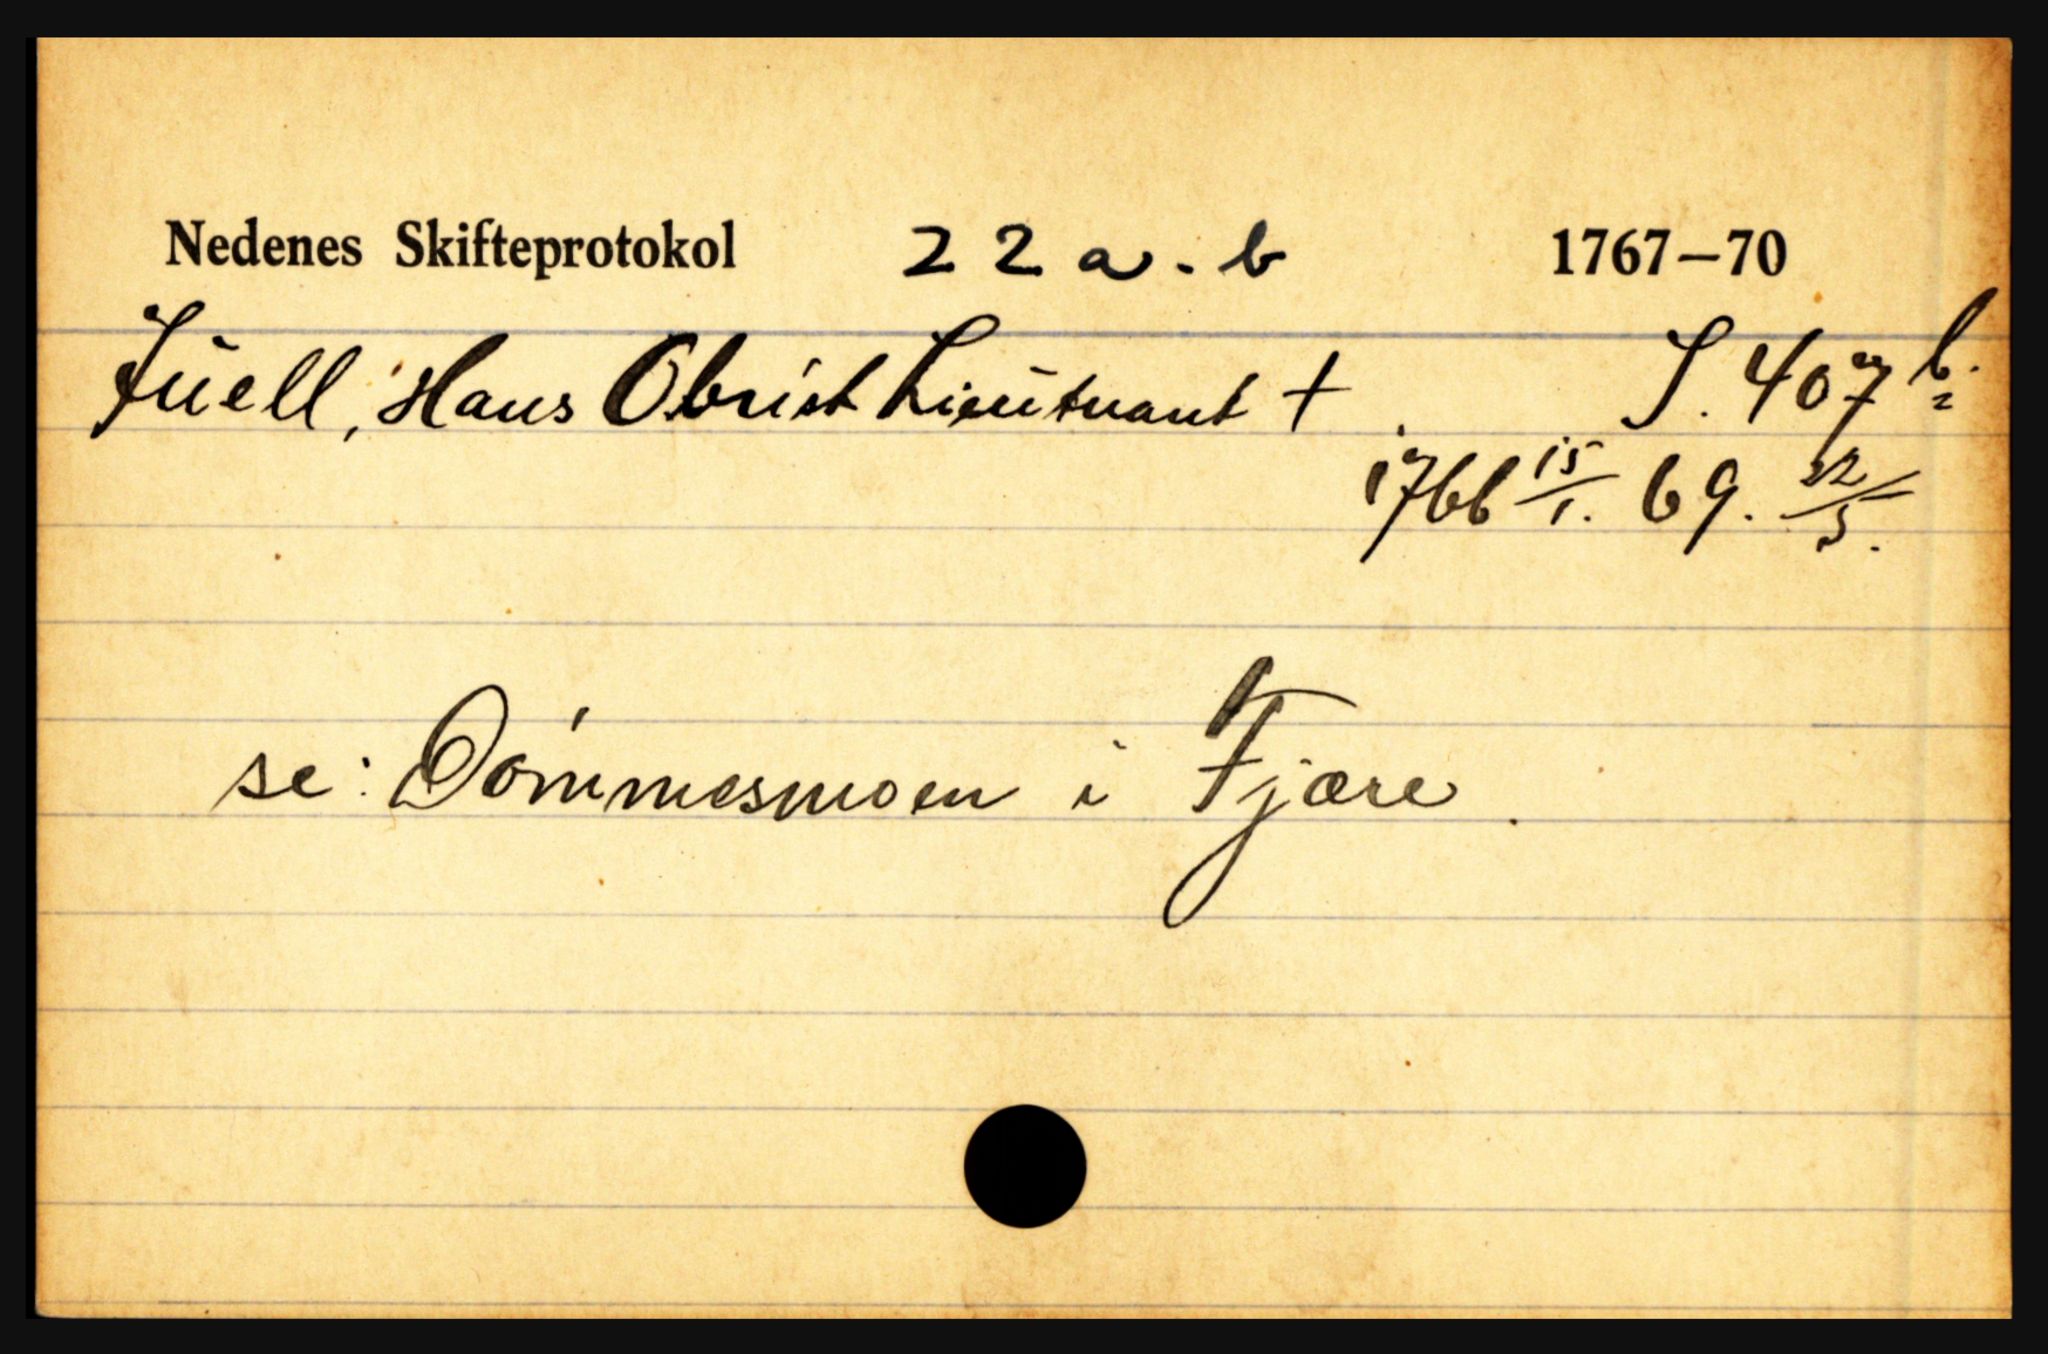 Nedenes Skifteprotokol 22 a. b 1767—70
Juell, Hans Obrist Lieutnant † S. 407 b.
1766 15/1. 69. 22/5.
se: Dømmesmoen i Fjære.